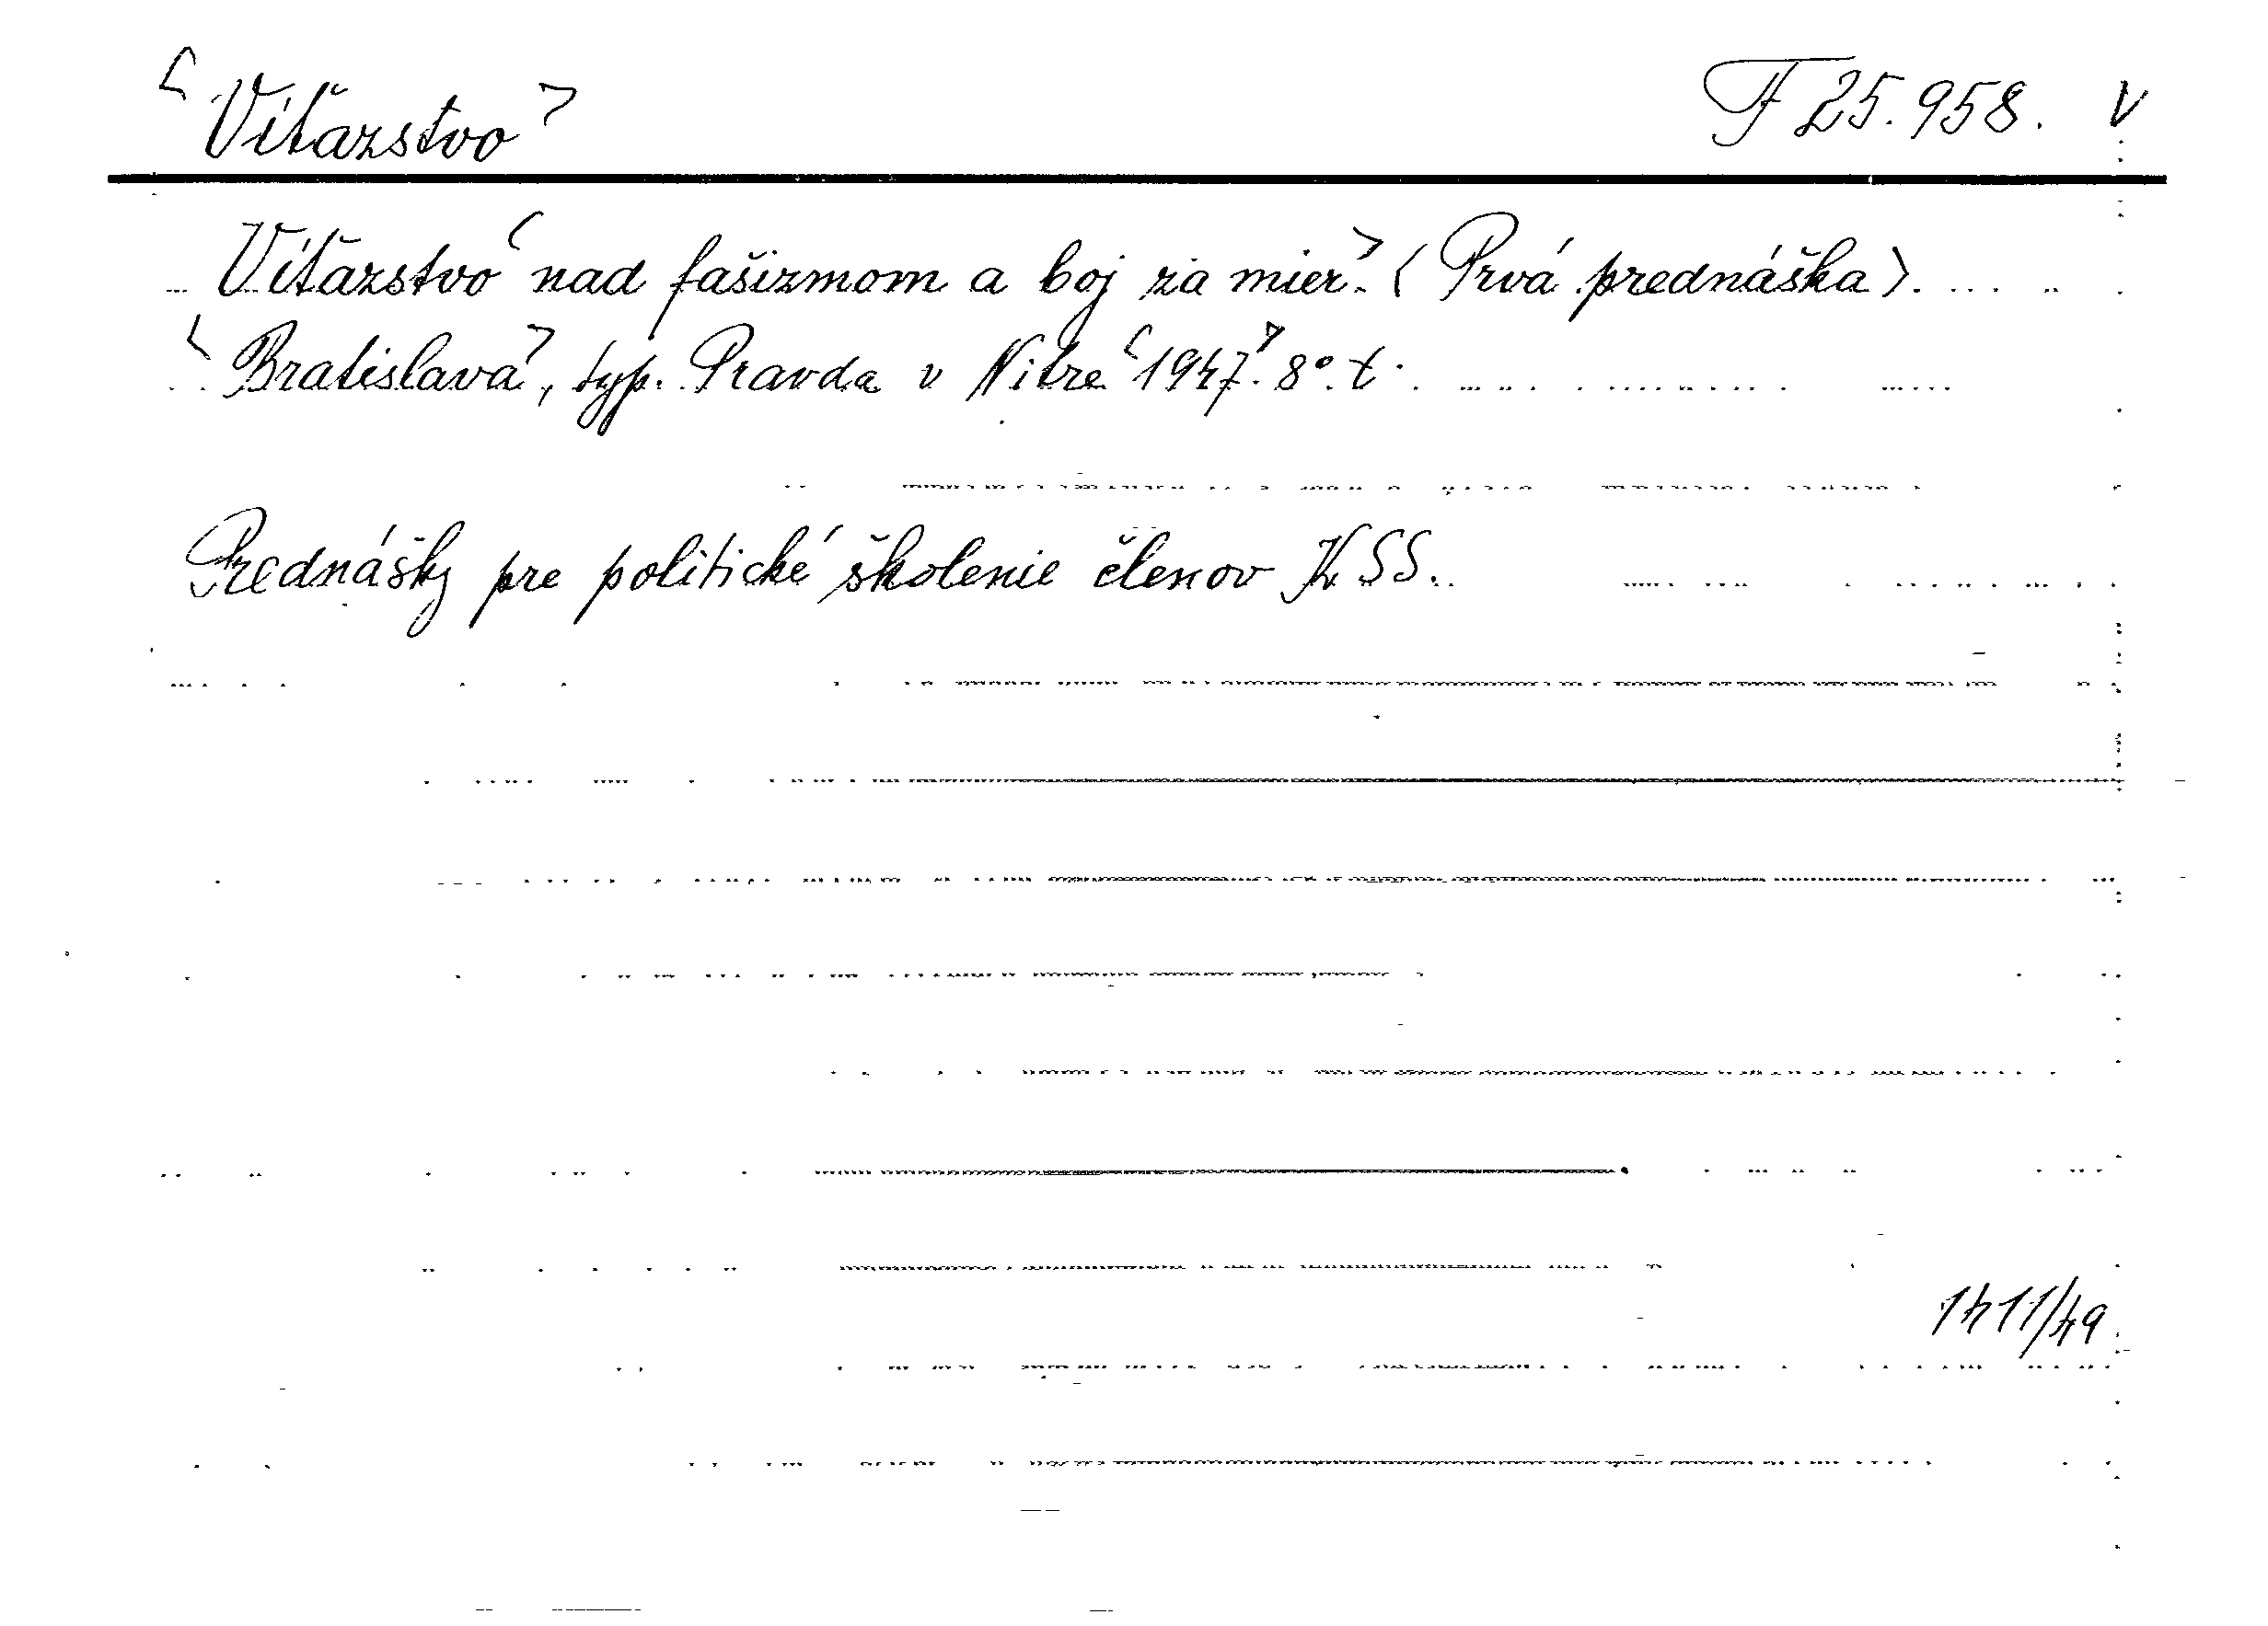 <Víťazstvo> F 25.958. V
Víťazstvo <nad fašizmom a boj za mier.> (Prvá prednáška).
<Bratislava>, typ. Pravda v Nitre <1947.> 8°. t.
Prednášky pre politické školenie členov KSS.
1411/49.